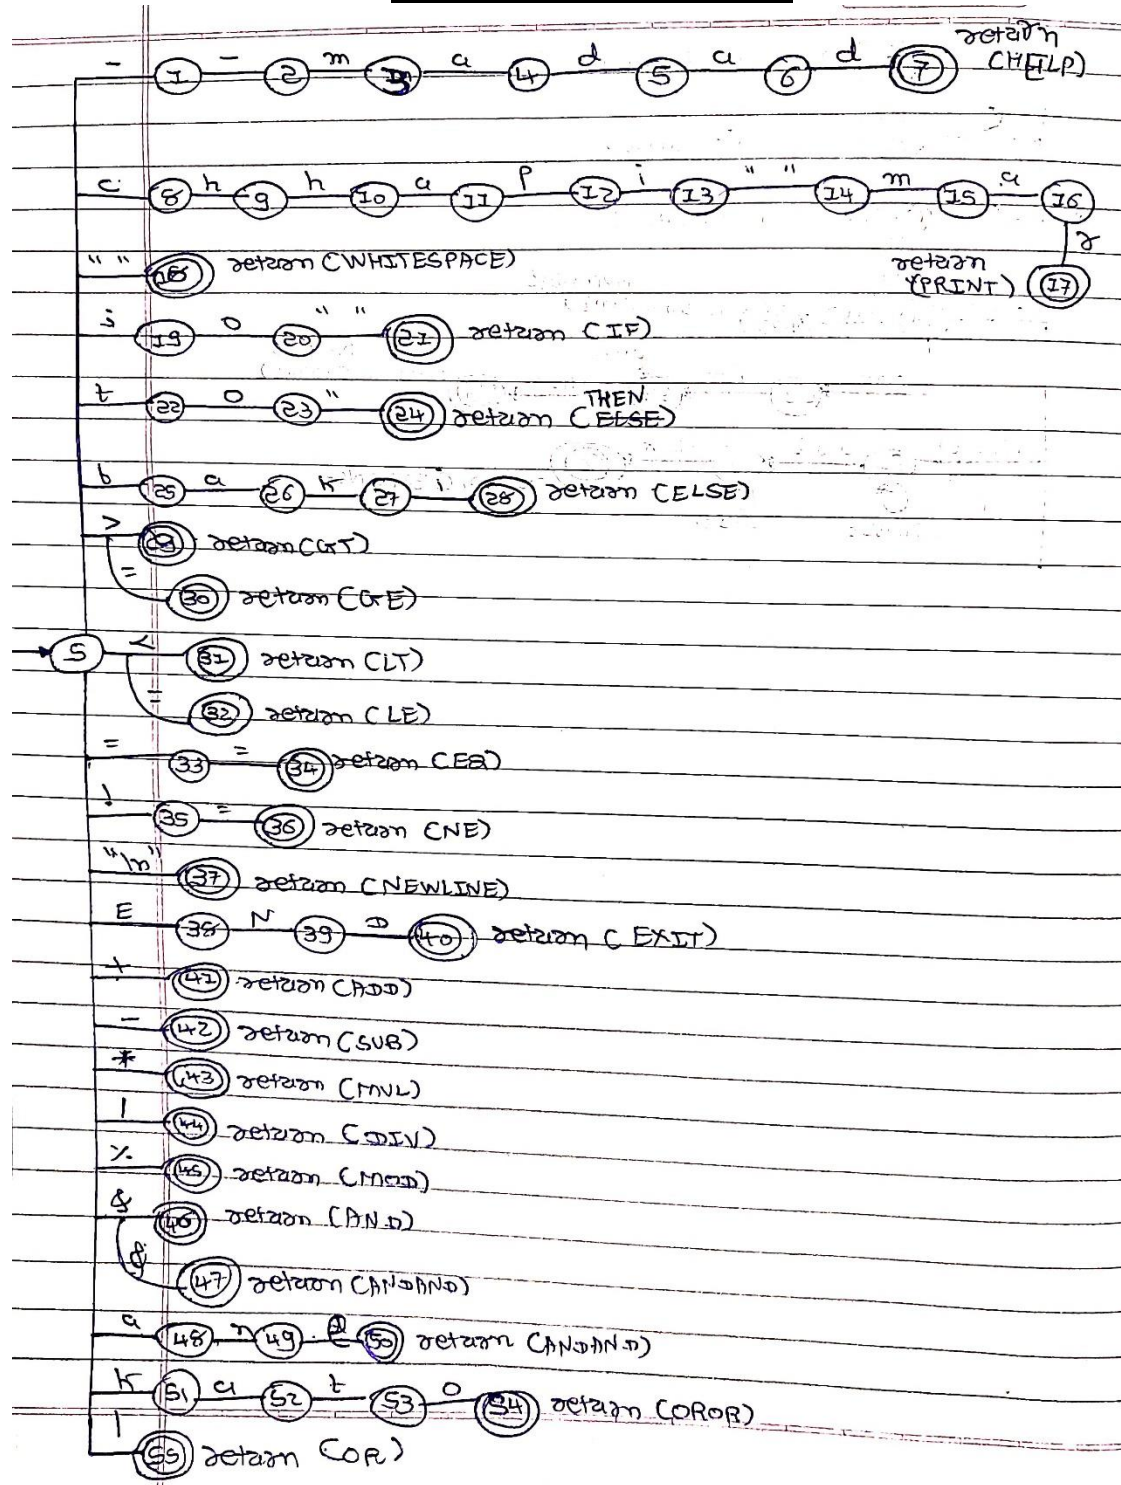 - 1 - 2 m 3 a 4 d 5 a 6 d 7 return (HELP)
c 8 h 9 h 10 a 11 p 12 i 13 " " 14 m 15 a 16
r
17 return (PRINT)
" " 18 return (WHITESPACE)
j 19 o 20 " " 21 return (IF)
t 22 o 23 " 24 return (THEN ELSE)
b 25 a 26 k 27 i 28 return (ELSE)
> 29 return (GT)
= 30 return (GE)
S < 31 return (LT)
= 32 return (LE)
= 33 = 34 return (EQ)
! 35 = 36 return (NE)
"\n" 37 return (NEWLINE)
E 38 N 39 D 40 return (EXIT)
+ 41 return (ADD)
- 42 return (SUB)
* 43 return (MUL)
/ 44 return (DIV)
% 45 return (MOD)
& 46 return (AND)
& 47 return (ANDAND)
a 48 n 49 e 50 return (ANDAND)
k 51 a 52 t 53 o 54 return (OROR)
| 55 return (OR)